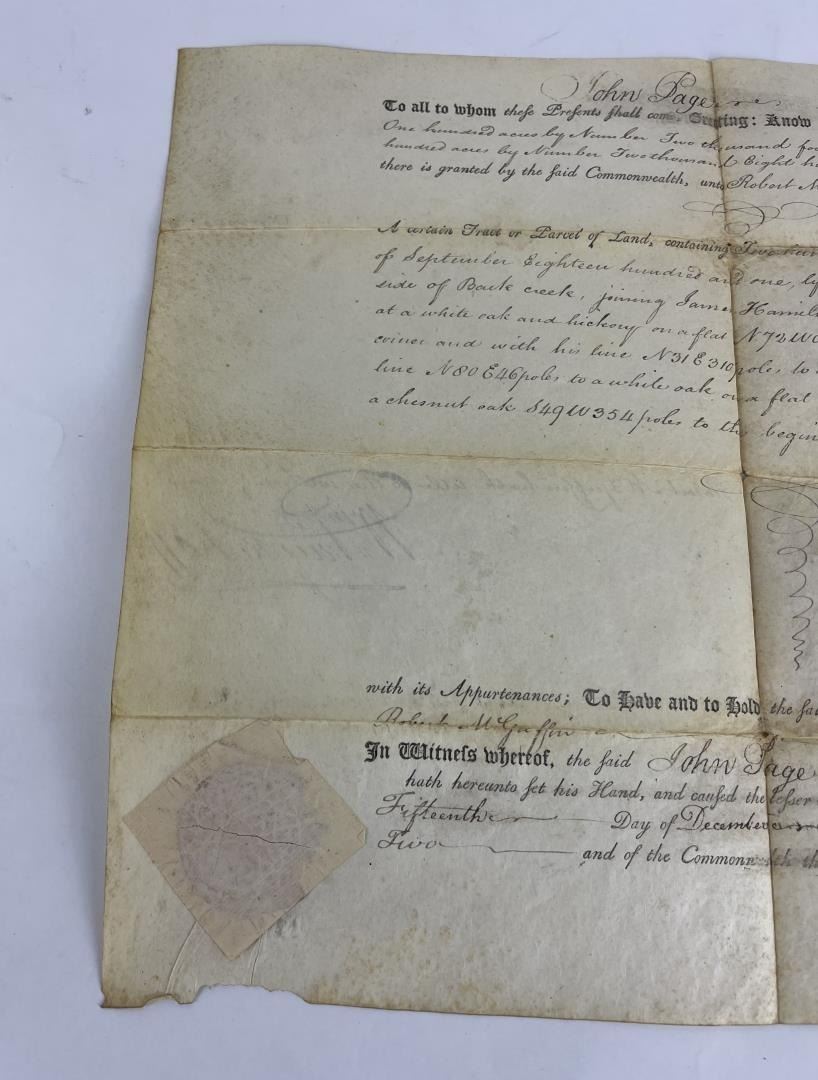 John Page
To all to whom these Presents shall come Greeting: Know
One hundred acres by Number Two thousand fou
hundred acres by Number Two thousand Eight hu
there is granted by the said Commonwealth, unto Robert
A certain Tract or Parcel of Land, containing
of September Eighteen hundred and one, ly
side of Back creek, joining James Hamil
at a white oak and hickory on a flat N72W
corner and with his line N31E310poles to
line N80E46poles to a white oak on a flat
a chesnut oak S49W354poles to the begin
with its Appurtenances; To Have and to Hold the sai
Robert McGuffin
In Witness whereof, the said John Page
hath hereunto set his Hand, and caused the lesser
Fifteenth Day of December
Two and of the Commonwealth th